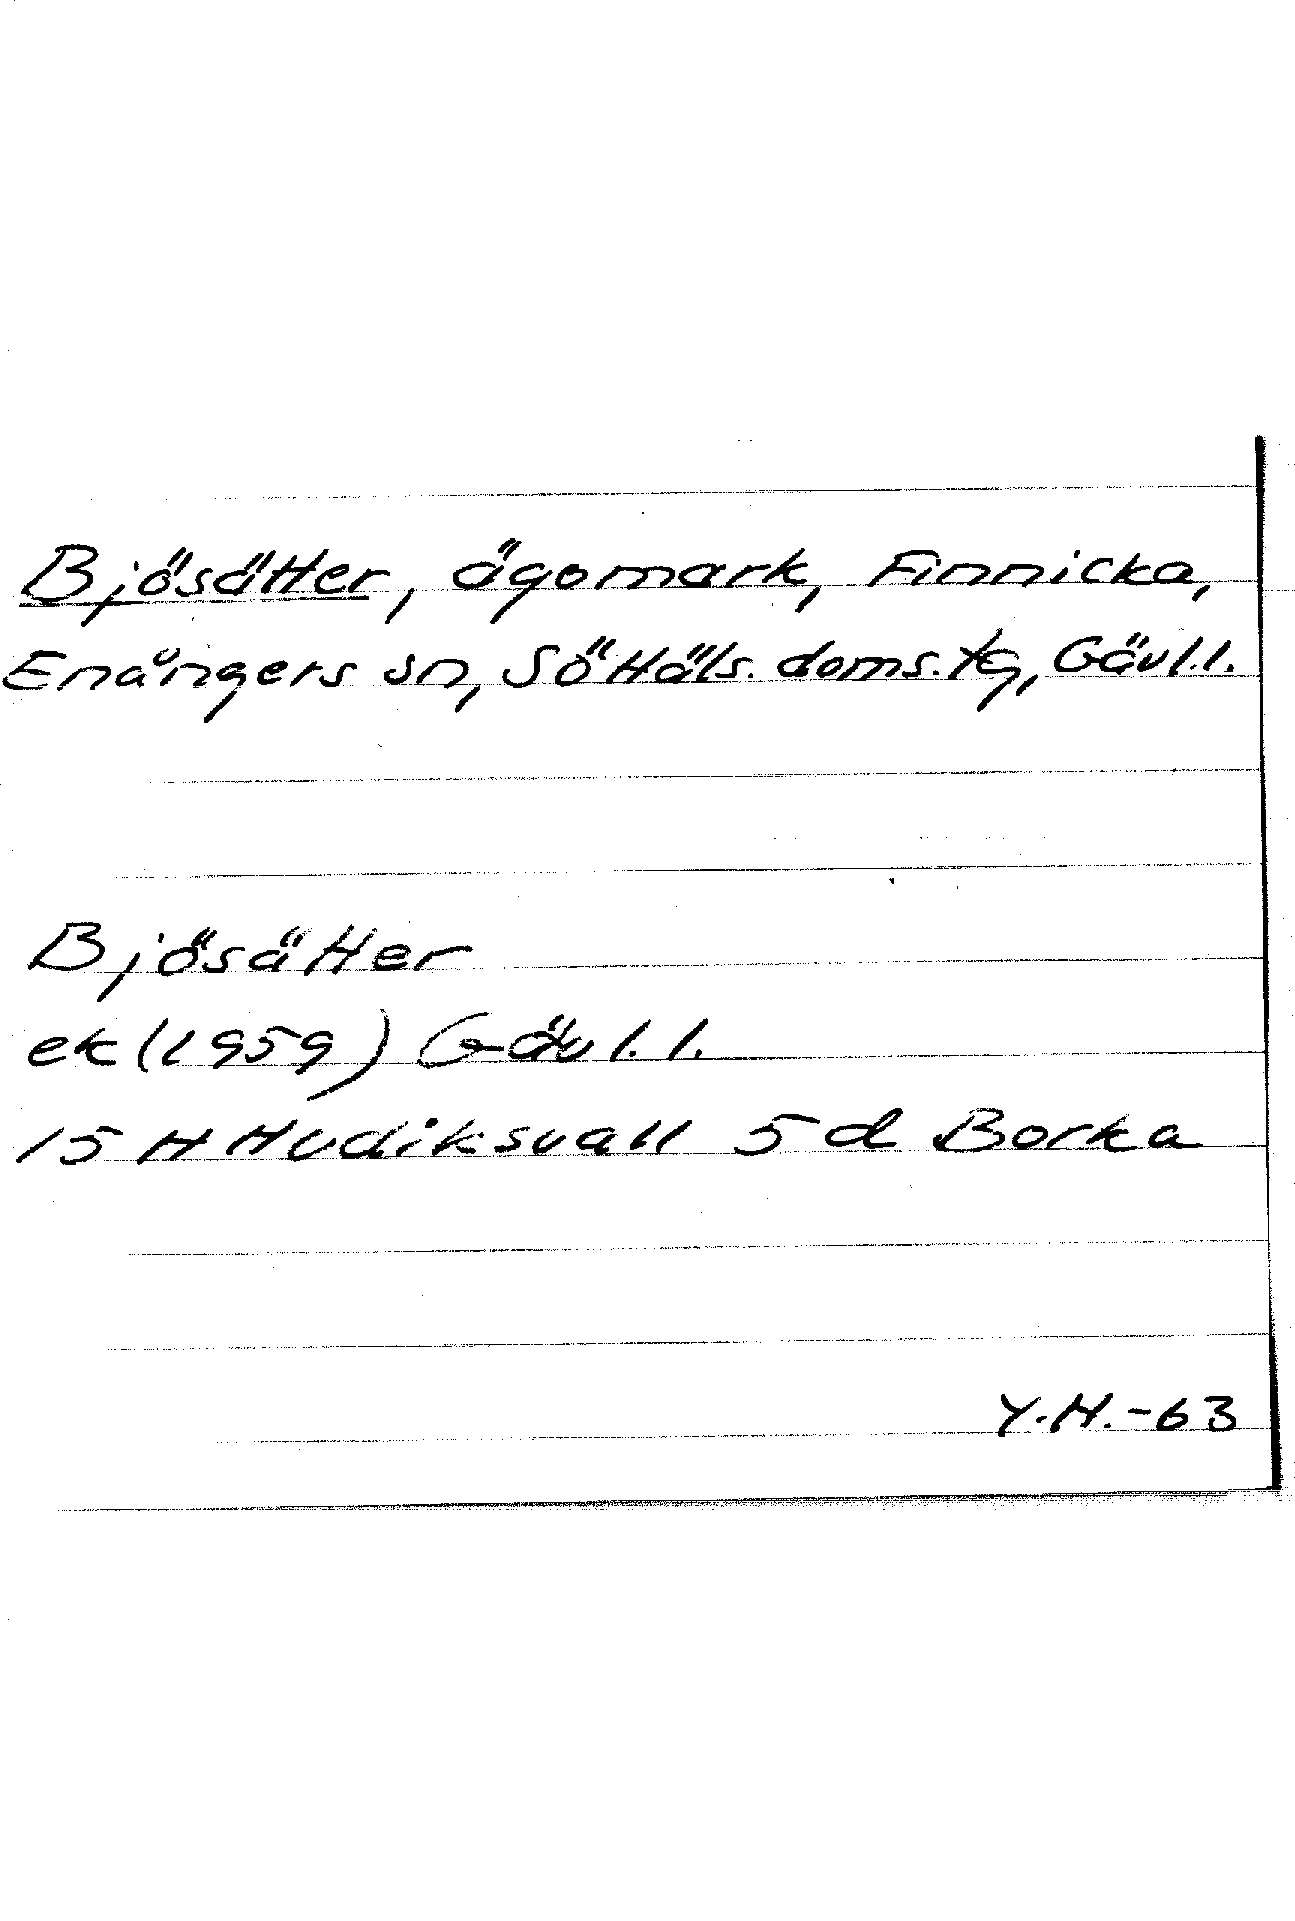 Bjösätter, ägomark, Finnicka,
Enångers sn, SöHäls. doms. tg, Gävl.l.
Bjösätter
ek (1959) Gävl.l.
15 H Hudiksvall 5 d Borka
Y.H.-63